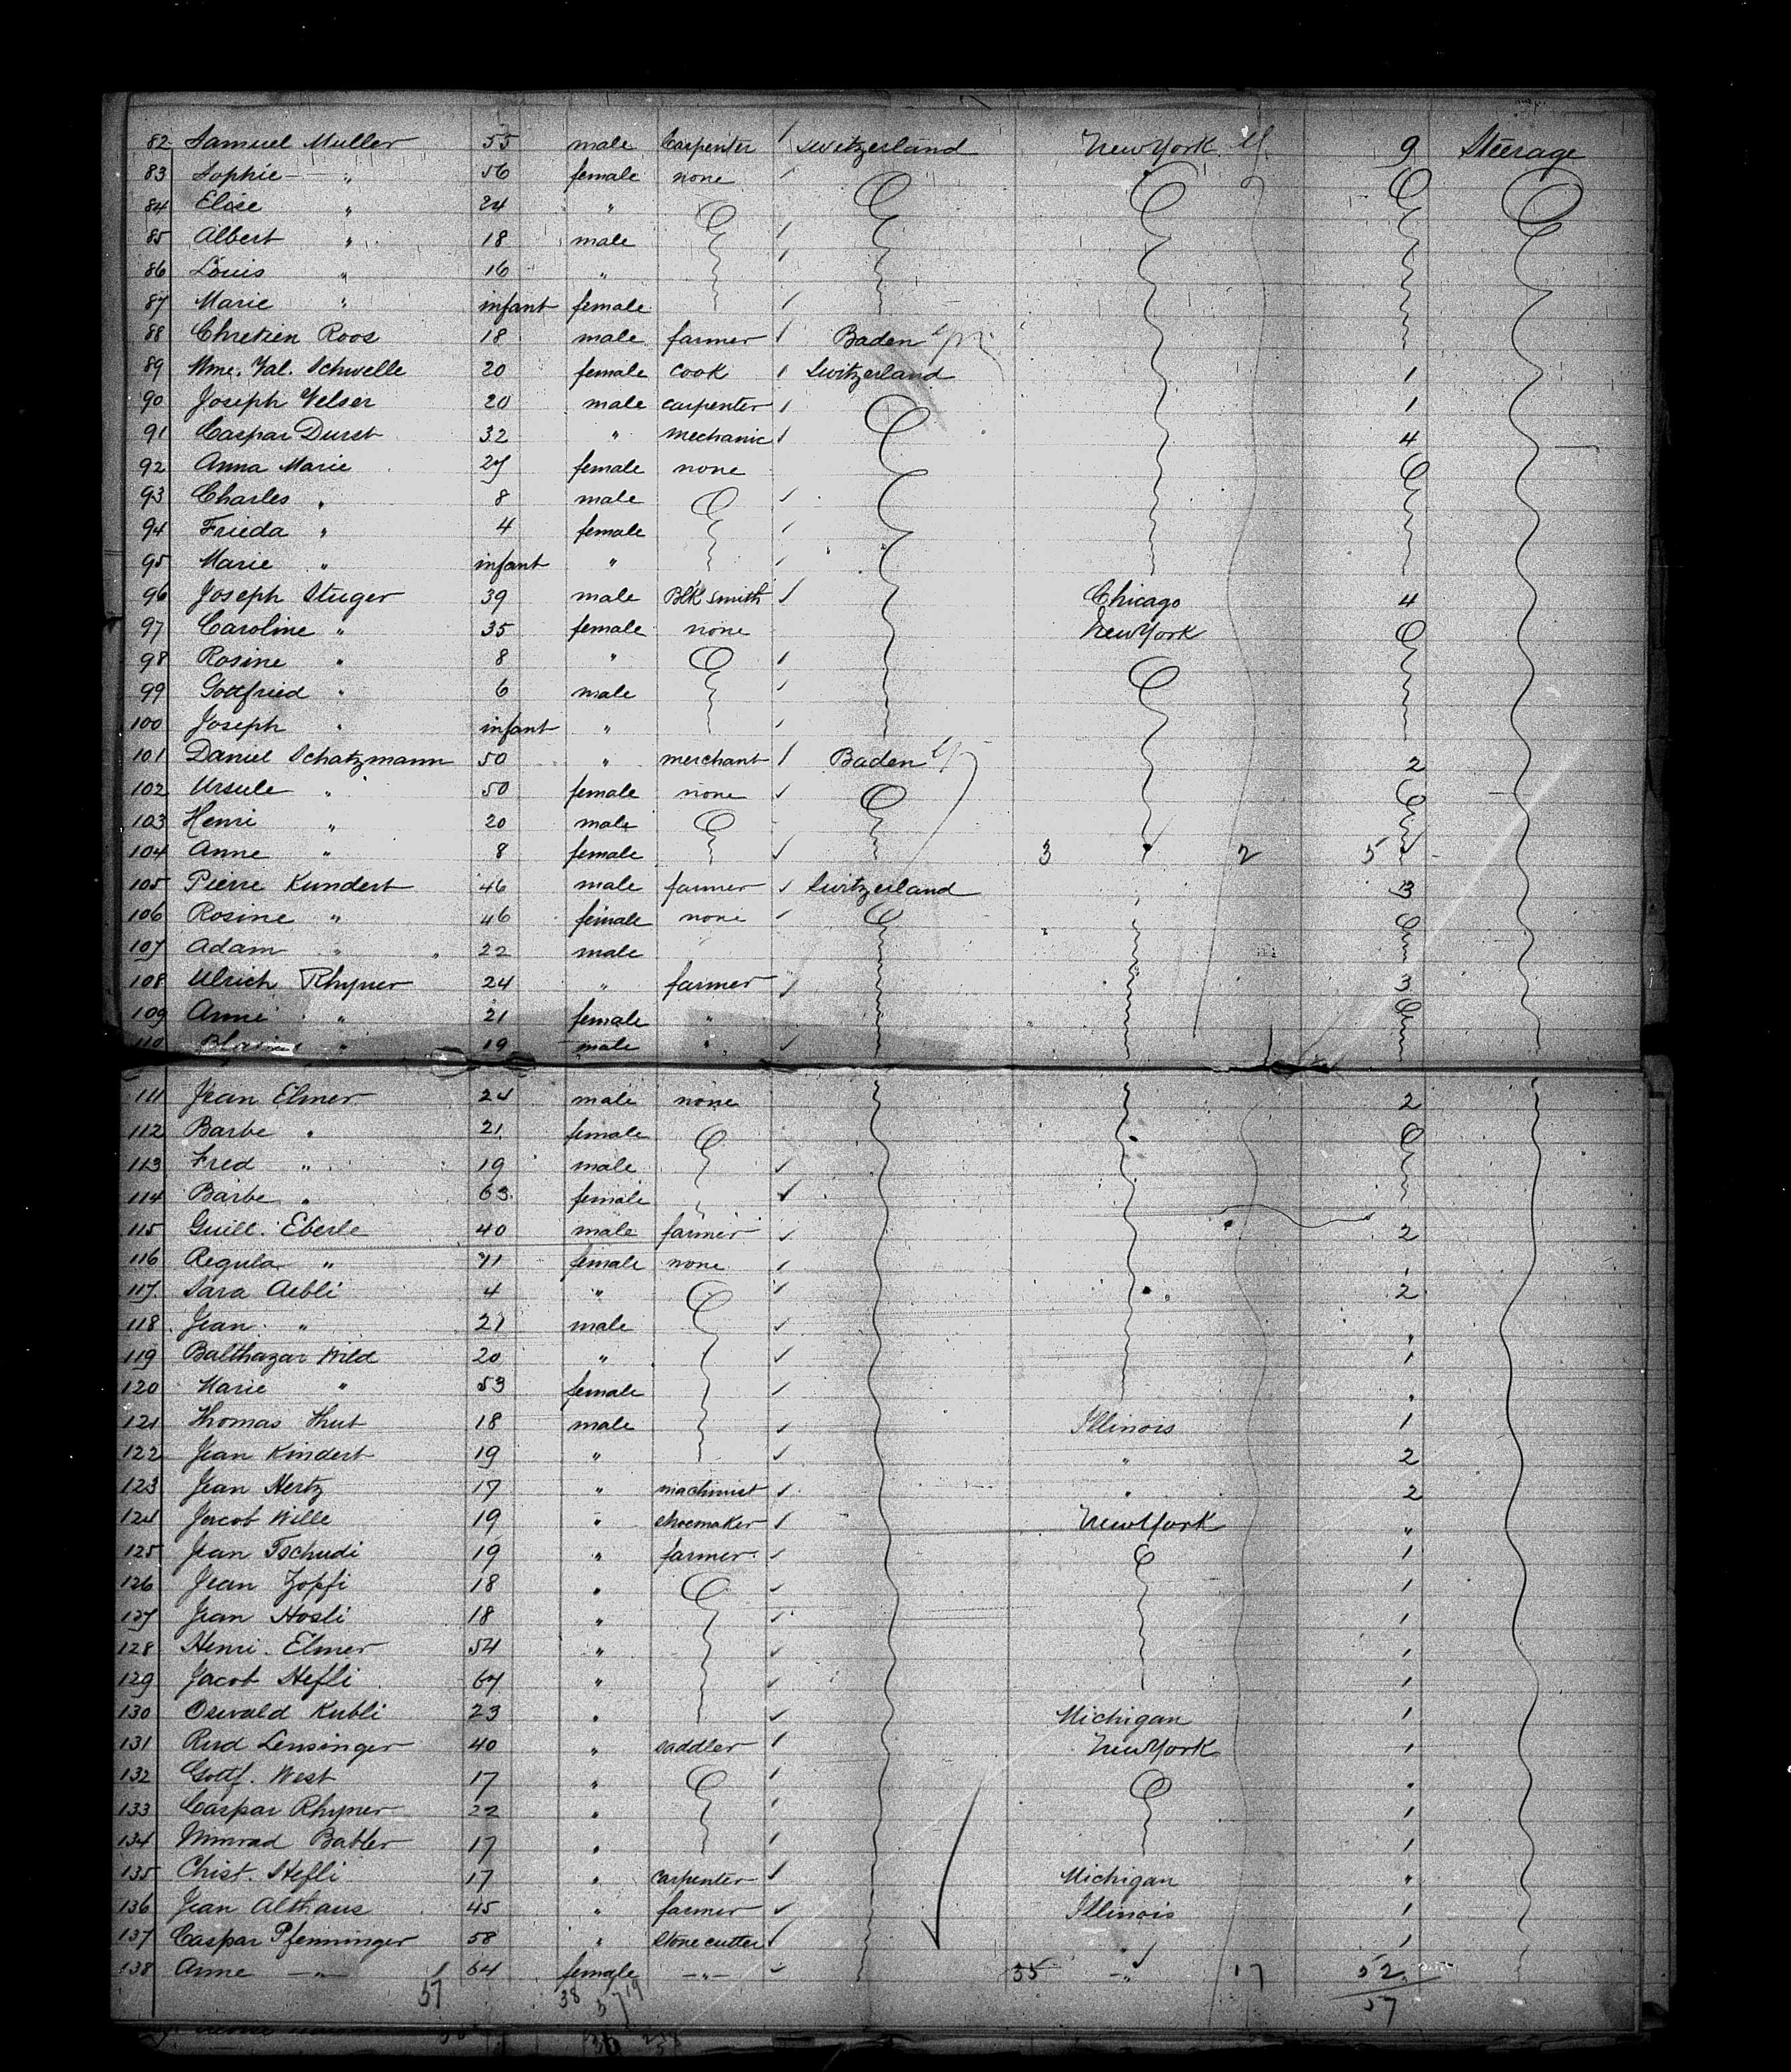 82 Samuel Muller 55 male Carpenter / Switzerland New York 9 Steerage
83 Sophie " 56 female none
84 Elise " 24 "
85 Albert " 18 male
86 Louis " 16 "
87 Marie " infant female
88 Chretien Roos 18 male farmer Baden
89 Mme. Val. Schwelle 20 female cook Switzerland 1
90 Joseph Velser 20 male carpenter 1
91 Caspar Durst 32 " mechanic 4
92 Anna Marie 27 female none
93 Charles " 8 male
94 Frieda " 4 female
95 Marie " infant "
96 Joseph Stuger 39 male Blk smith Chicago 4
97 Caroline " 35 female none New York
98 Rosine " 8 "
99 Gottfried " 6 male
100 Joseph " infant "
101 Daniel Schatzmann 50 " merchant Baden 2
102 Ursule " 50 female none
103 Henri " 20 male
104 Anne " 8 female 3 2 5
105 Pierre Kundert 46 male farmer Switzerland 3
106 Rosine " 46 female none
107 Adam " 22 male
108 Ulrich Rhyner 24 " farmer 3
109 Anne " 21 female "
110 " 19 male "
111 Jean Elmer 24 male none 2
112 Barbe " 21 female
113 Fred " 19 male
114 Barbe " 63 female
115 Guill. Eberle 40 male farmer 2
116 Regula " 41 female none
117 Sara Aebli 4 " 2
118 Jean " 21 male "
119 Balthazar Wild 20 " 1
120 Marie " 53 female "
121 Thomas Thut 18 male Illinois 1
122 Jean Kindert 19 " " 2
123 Jean Hertz 17 " machinist " 2
124 Jacob Wille 19 " shoemaker New York "
125 Jean Tschudi 19 " farmer 1
126 Jean Zopfi 18 " 1
127 Jean Hosli 18 " 1
128 Henri Elmer 54 " 1
129 Jacob Hefli 64 " 1
130 Oswald Kubli 23 " Michigan 1
131 Rud Lensinger 40 " saddler New York 1
132 Gottf. West 17 " "
133 Caspar Rhyner 22 " 1
134 Babler 17 " 1
135 Christ. Hefli 17 " carpenter Michigan "
136 Jean Althaus 45 " farmer Illinois 1
137 Caspar Pfenninger 58 " Stone cutter " 1
138 Anne " 64 female " 35 " 17 52
57 38 19 57 57